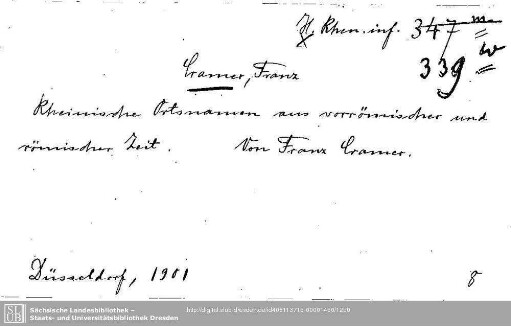 H. Rhen. inf. 347 m
339 w
Cramer, Franz
Rheinische Ortsnamen aus vorrömischer und
römischer Zeit. Von Franz Cramer.
Düsseldorf, 1901 8
SLUB
Sächsische Landesbibliothek –
Staats- und Universitätsbibliothek Dresden